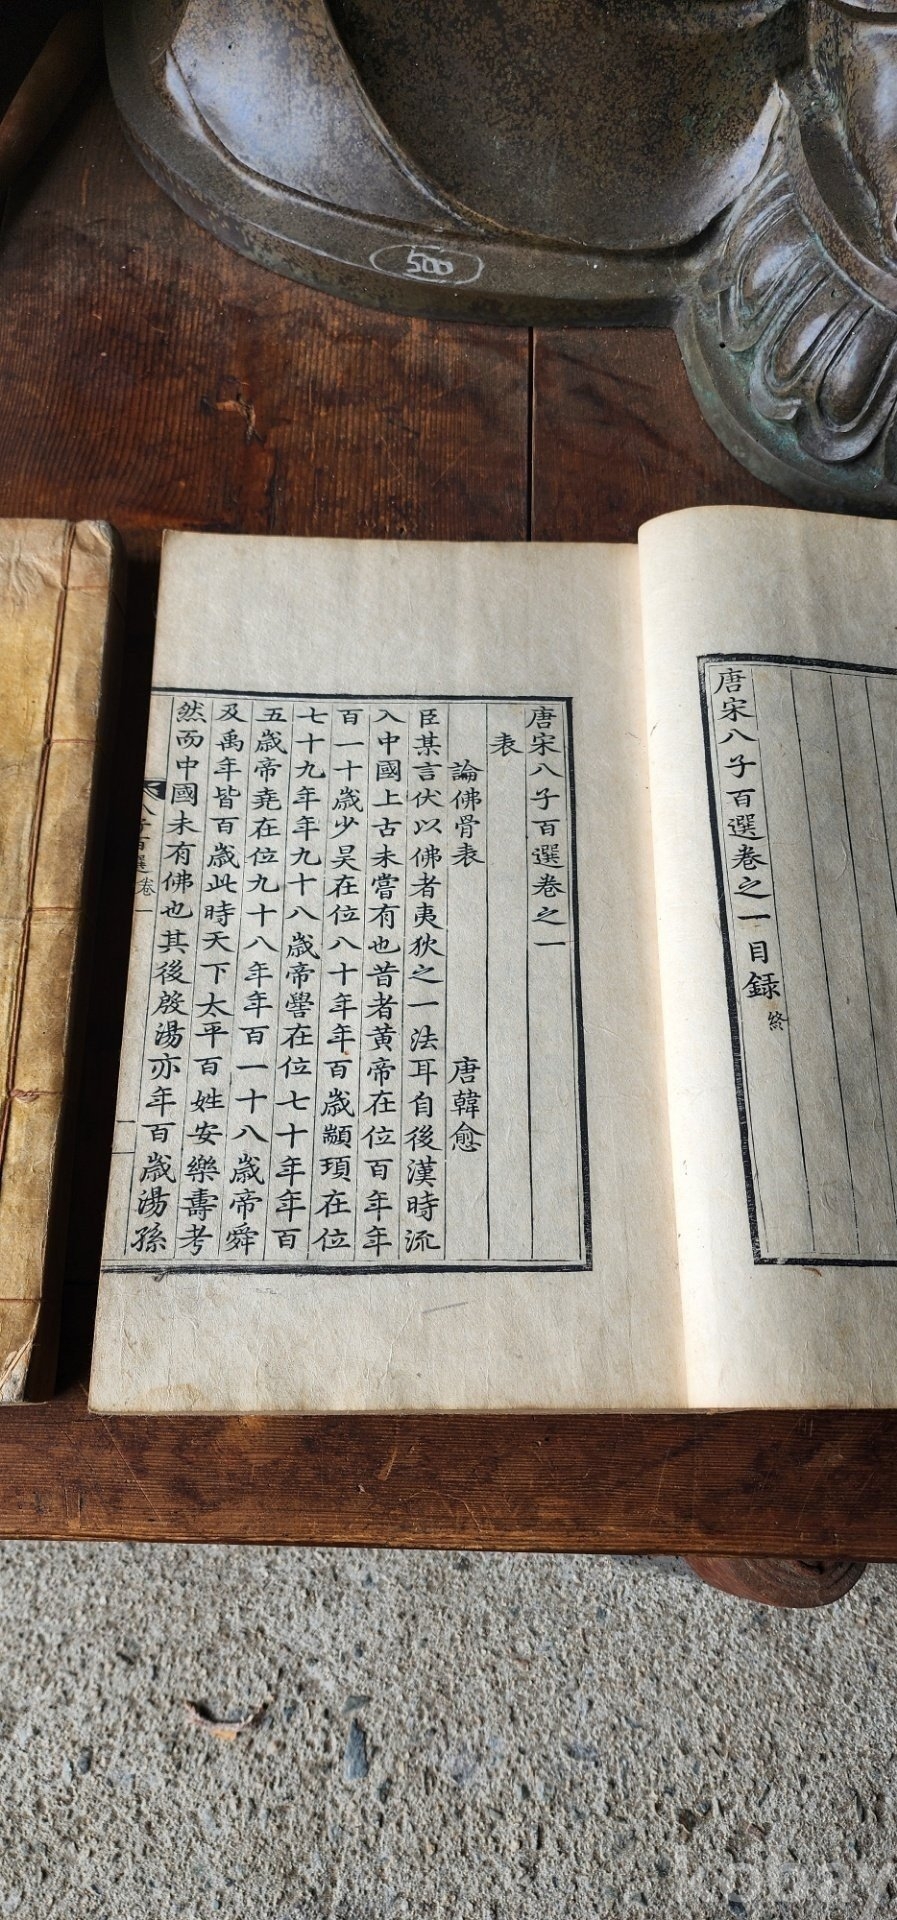 500
唐宋八子百選卷之一目録終
唐宋八子百選卷之一
表
論佛骨表 唐韓愈
臣某言伏以佛者夷狄之一法耳自後漢時流
入中國上古未嘗有也昔者黃帝在位百年年
百一十歲少昊在位八十年年百歲顓頊在位
七十九年年九十八歲帝嚳在位七十年年百
五歲帝堯在位九十八年年百一十八歲帝舜
及禹年皆百歲此時天下太平百姓安樂壽考
然而中國未有佛也其後殷湯亦年百歲湯孫
八子百選卷一
一
kobay